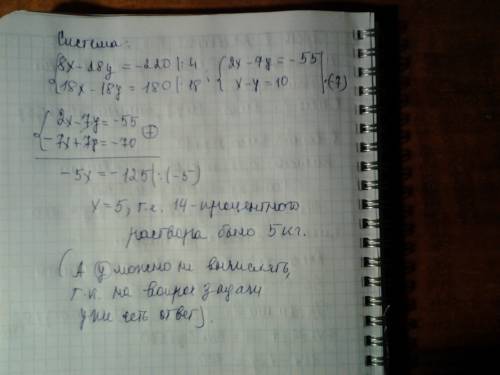 Система:
{8x-28y=-220|:4 {2x-7y=-55|
{18x-18y=180|:18 ; {x-y=10 |·(-7)
{2x-7y=-55
{-7x+7y=-70 ⊕
-5x=-125|:(-5)
x=5, т.е. 14-процентного
раствора было 5 кг.
(А y можно не вычислять,
т.к. на вопрос задачи
уже есть ответ).